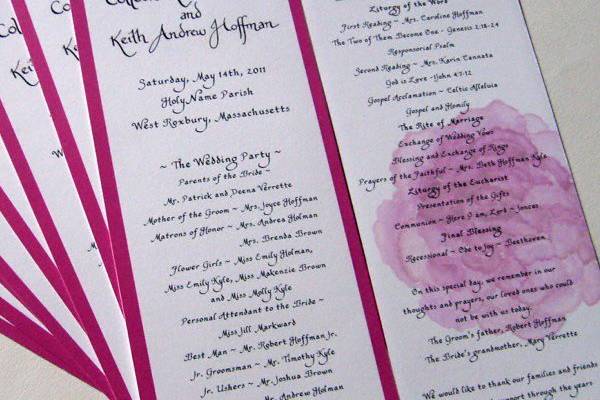 and
Keith Andrew Hoffman
Saturday, May 14th, 2011
Holy Name Parish
West Roxbury, Massachusetts
~ The Wedding Party ~
Parents of the Bride ~
Mr. Patrick and Deena Verrette
Mother of the Groom ~ Mrs. Joyce Hoffman
Matrons of Honor ~ Mrs. Andrea Holman
Mrs. Brenda Brown
Flower Girls ~ Miss Emily Holman,
Miss Emily Kyle, Miss Makenzie Brown
and Miss Molly Kyle
Personal Attendant to the Bride ~
Miss Jill Markward
Best Man ~ Mr. Robert Hoffman Jr.
Groomsman ~ Mr. Timothy Kyle
Jr. Ushers ~ Mr. Joshua Brown
Mr. Andrew Holman
Liturgy of the Word
First Reading ~ Mrs. Caroline Hoffman
The Two of Them Become One - Genesis 2:18-24
Responsorial Psalm
Second Reading ~ Mrs. Karin Cannata
God is Love ~ John 4:7-12
Gospel Acclamation ~ Celtic Alleluia
Gospel and Homily
The Rite of Marriage
Exchange of Wedding Vows
Blessing and Exchange of Rings
Prayers of the Faithful ~ Mrs. Beth Hoffman Kyle
Liturgy of the Eucharist
Presentation of the Gifts
Communion ~ Here I am, Lord ~ Joncas
Final Blessing
Recessional ~ Ode to Joy ~ Beethoven
On this special day, we remember in our
thoughts and prayers, our loved ones who could
not be with us today.
The Groom's father, Robert Hoffman
The Bride's grandmother, Mary Verrette
We would like to thank our families and friends
support through the years